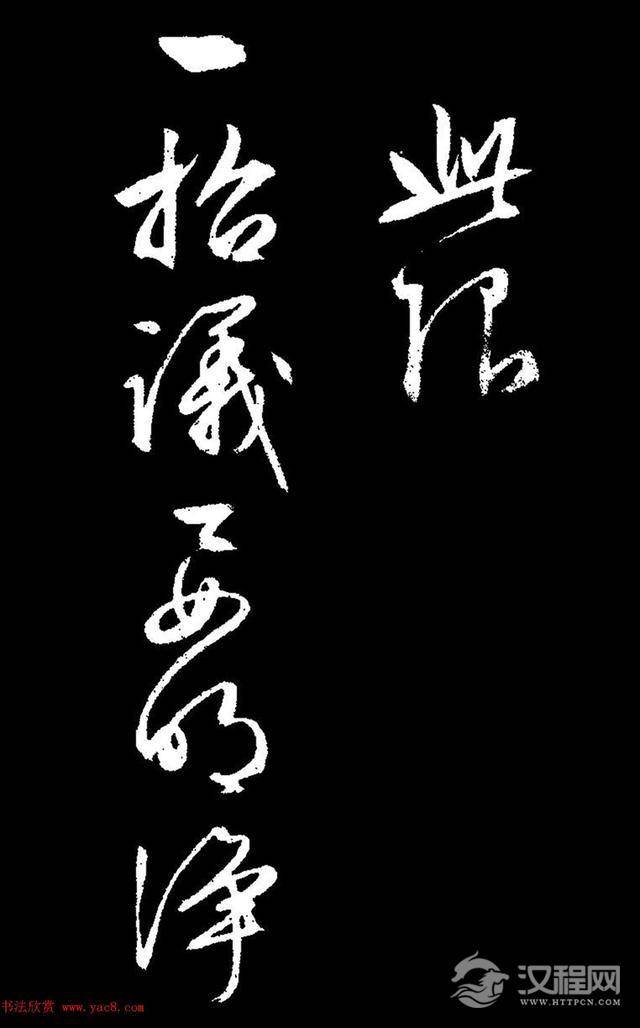 此限
一拾議要明淨
书法欣赏 www.yac8.com
汉程网
WWW.HTTPCN.COM